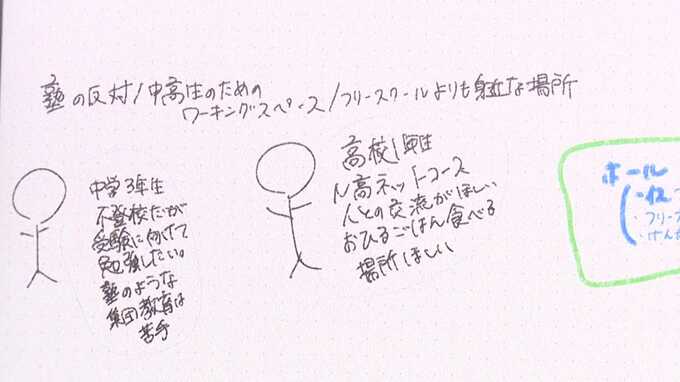 塾の反対/中高生のための
ワーキングスペース/フリースクールよりも身近な場所
中学3年生
不登校だが
受験に向けて
勉強したい。
塾のような
集団教育は
苦手
高校1年生
N高ネットコース
人との交流がほしい
おひるごはん食べる
場所ほしい
ホール
・フリース
・けん